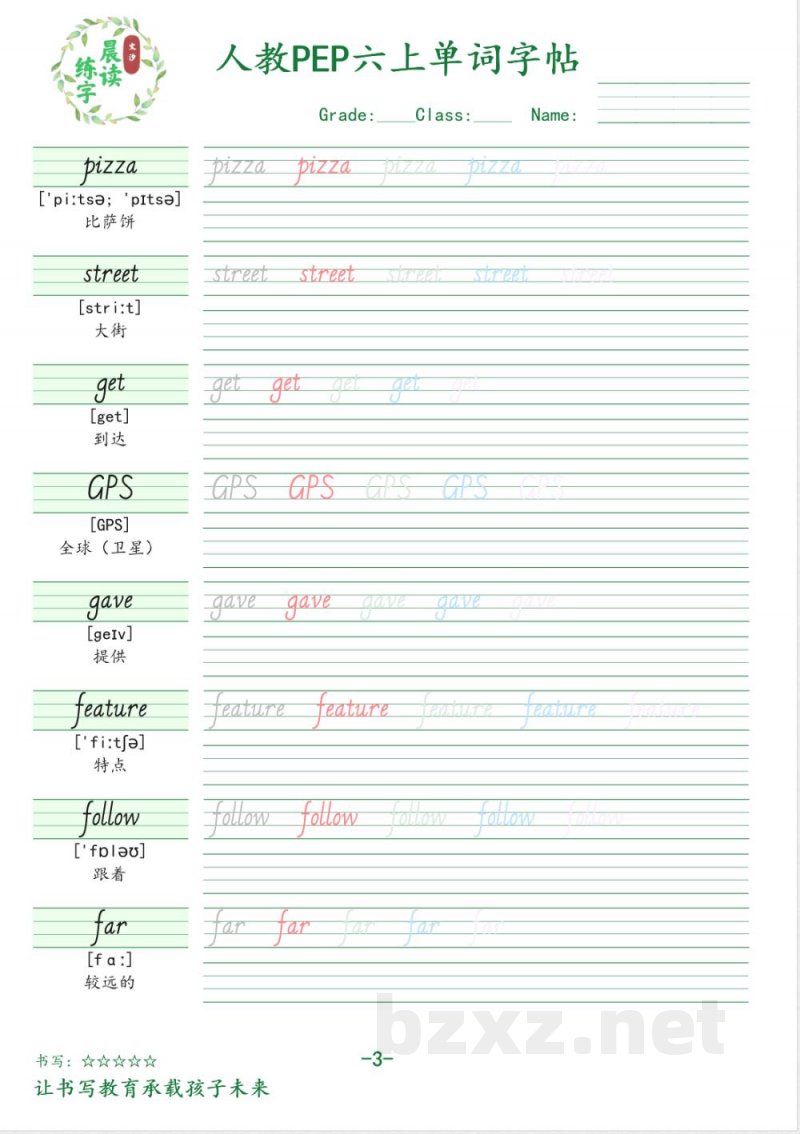 文汐
晨读
练字
人教PEP六上单词字帖
Grade:____Class:____ Name:
pizza pizza pizza pizza pizza pizza
['pi:tsə; 'pɪtsə]
比萨饼
street street street street street street
[stri:t]
大街
get get get get get get
[get]
到达
GPS GPS GPS GPS GPS GPS
[GPS]
全球（卫星）
gave gave gave gave gave gave
[geɪv]
提供
feature feature feature feature feature feature
['fi:tʃə]
特点
follow follow follow follow follow follow
['fɒləʊ]
跟着
far far far far far far
[fɑ:]
较远的
bzxz.net
书写：☆☆☆☆☆
-3-
让书写教育承载孩子未来